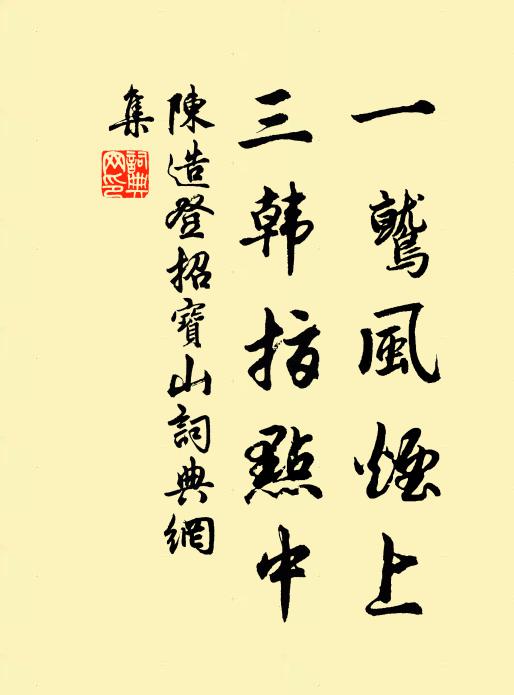 一鷲風煙上
三韩指點中
陳造登招寶山詞典網
集
詞典
网印